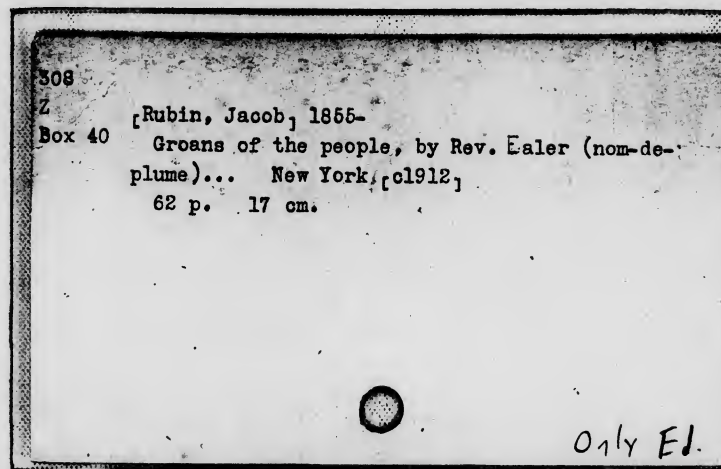 308
Z
Box 40
[Rubin, Jacob] 1855-
Groans of the people, by Rev. Ealer (nom-de-
plume)... New York, [c1912]
62 p. 17 cm.
Only Ed.